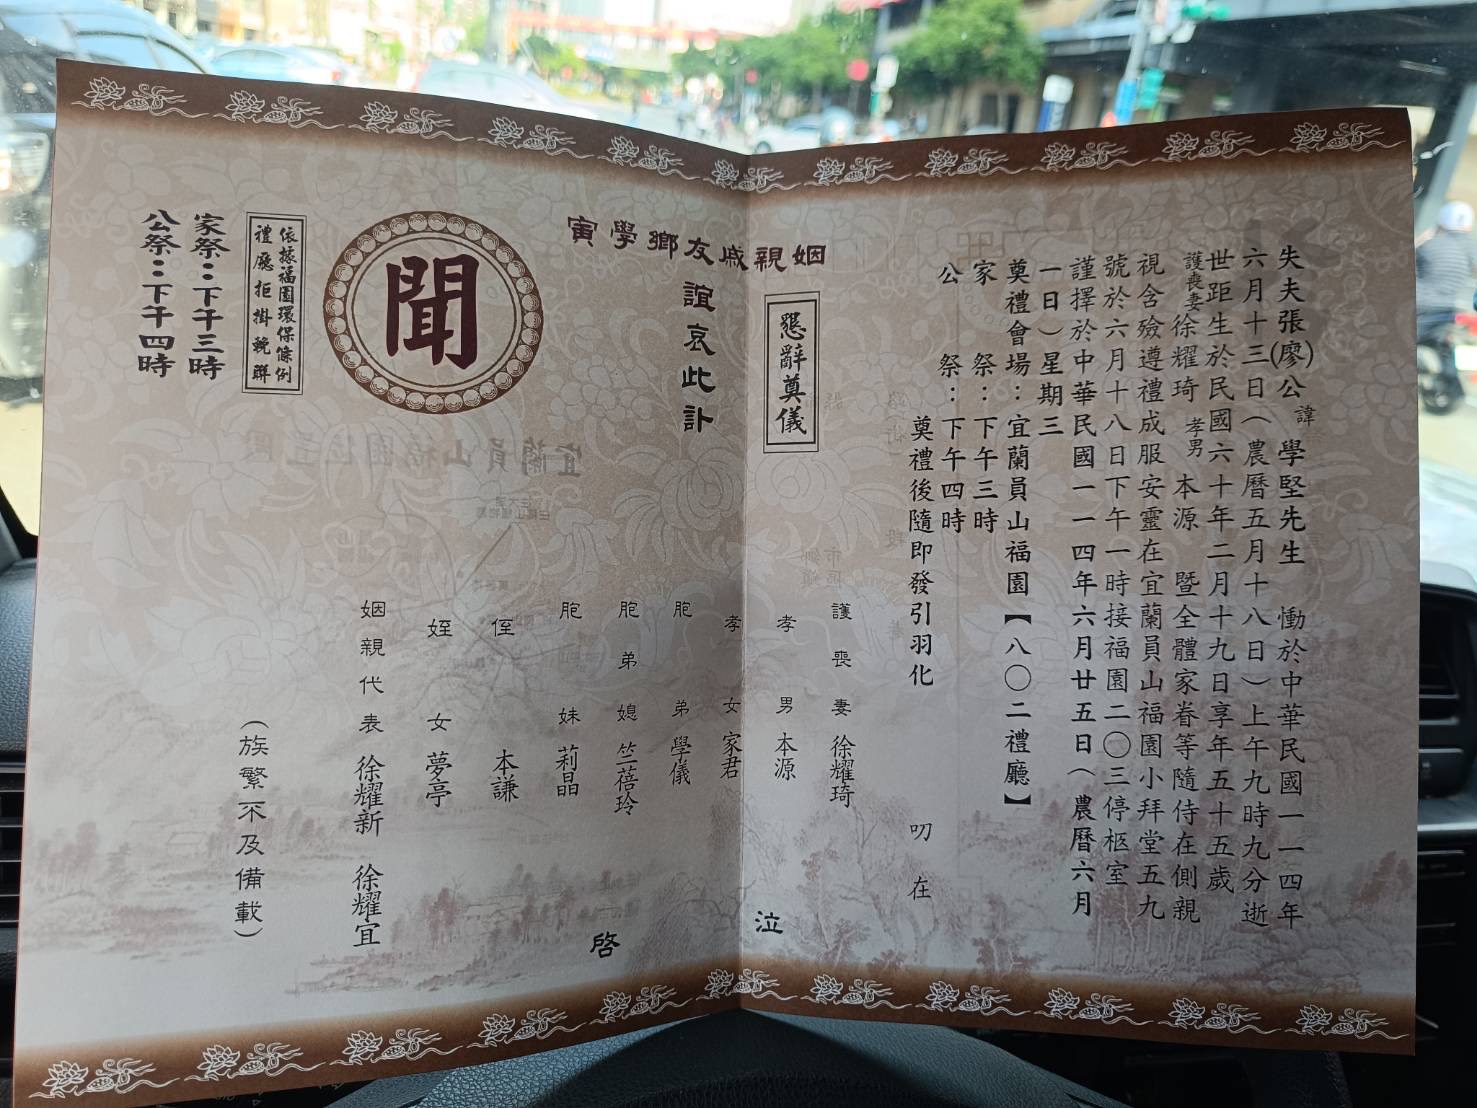 失夫張(廖)公諱 學堅先生 慟於中華民國一一四年
六月十三日(農曆五月十八日)上午九時九分逝
世距生於民國六十年二月十九日享年五十五歲
護喪妻徐耀琦 孝男 本源 暨全體家眷等隨侍在側親
視含殮遵禮成服安靈在宜蘭員山福園小拜堂五九
號於六月十八日下午一時接福園二〇三停柩室
謹擇於中華民國一一四年六月廿五日(農曆六月
一日)星期三
奠禮會場:宜蘭員山福園【八〇二禮廳】
家 祭:下午三時
公 祭:下午四時
奠禮後隨即發引羽化
叨在
姻親戚友鄉學寅
誼哀此訃
懇辭奠儀
聞
護喪妻 徐耀琦
孝男 本源
孝女 家君
胞弟 學儀
胞弟媳 竺蓓玲
胞妹 莉晶
侄 本謙
姪女 夢亭
姻親代表 徐耀新 徐耀宜
(族繁不及備載)
泣
啓
依據福園環保條例
禮廳拒掛輓聯
家祭:下午三時
公祭:下午四時